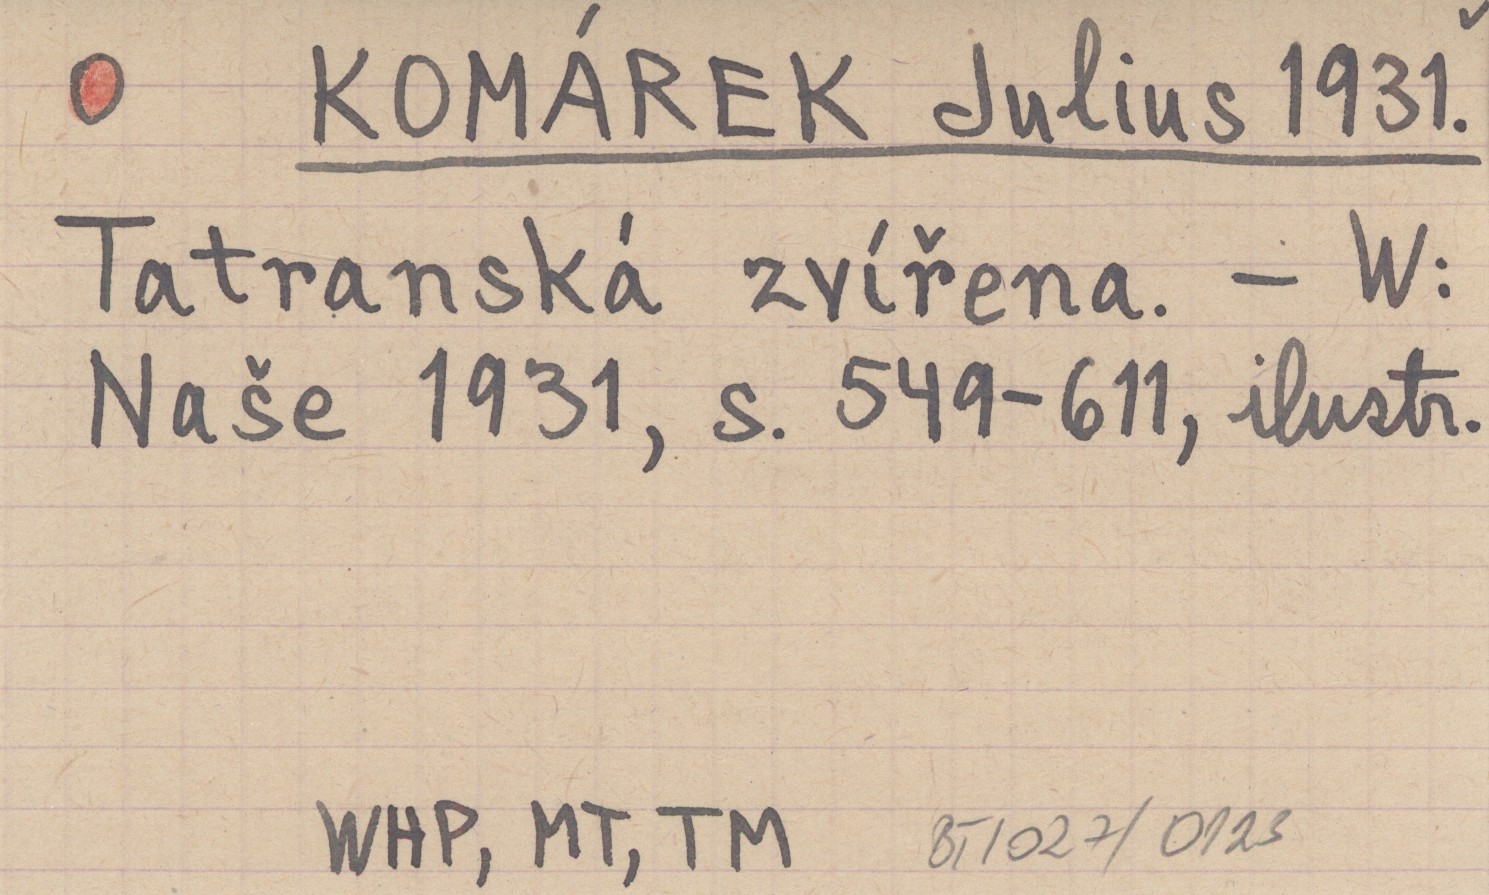 KOMÁREK Julius 1931.
Tatranská zvířena. – W:
Naše 1931, s. 549–611, ilustr.
WHP, MT, TM
BT/027/0123